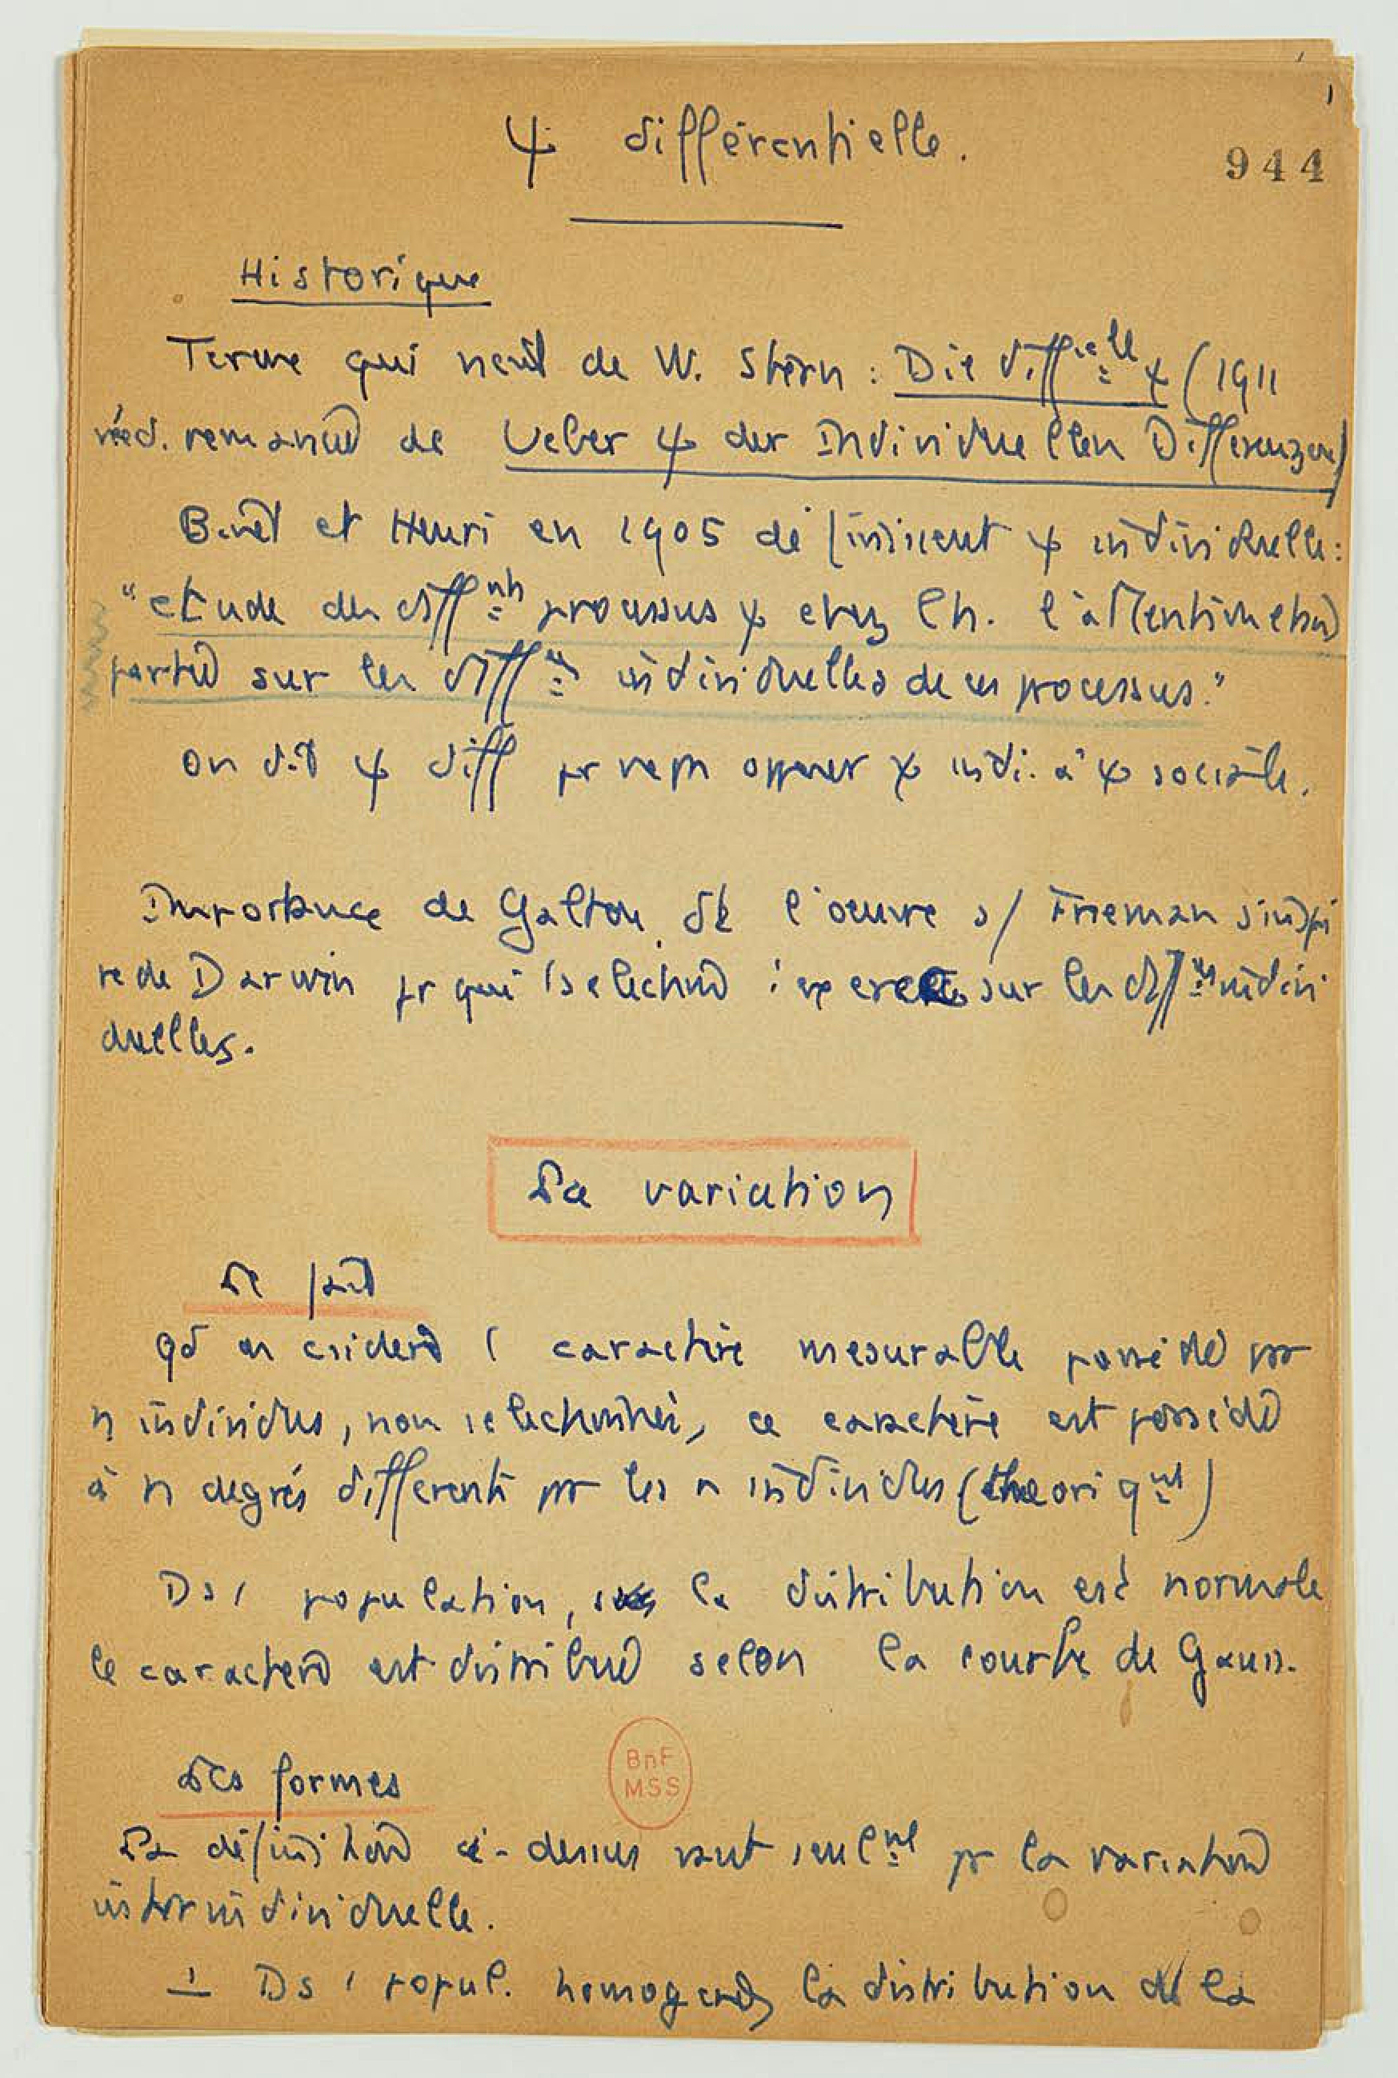 1
ψ différentielle.
944
Historique
Terme qui vient de W. Stern : Die diffielle ψ (1911
rééd. remaniée de Ueber ψ der Individuellen Differenzen)
Binet et Henri en 1905 définissent ψ individuelle :
"etude des diffnts processus ψ chez l'h. l'attention étant
portée sur les diffces individuelles de ces processus."
On dit ψ diff pr opposer ψ indi. à ψ sociale.
Importance de Galton, dt l'oeuvre s'inspi
re de Darwin pr qui la selection s'exerce sur les diffces indivi
duelles.
La variation
Le fait
qd on csidère 1 caractère mesurable possédé par
n individus, non selectionnés, ce caractère est possédé
à n degrés differents par les n individus (theoriqnt)
Ds 1 population, la distribution est normale
le caractère est distribué selon la courbe de Gauss.
BnF
MSS
Les formes
La définition ci-dessus vaut seulnt pr la variation
interindividuelle.
1 Ds 1 popul. homogène, la distribution de la